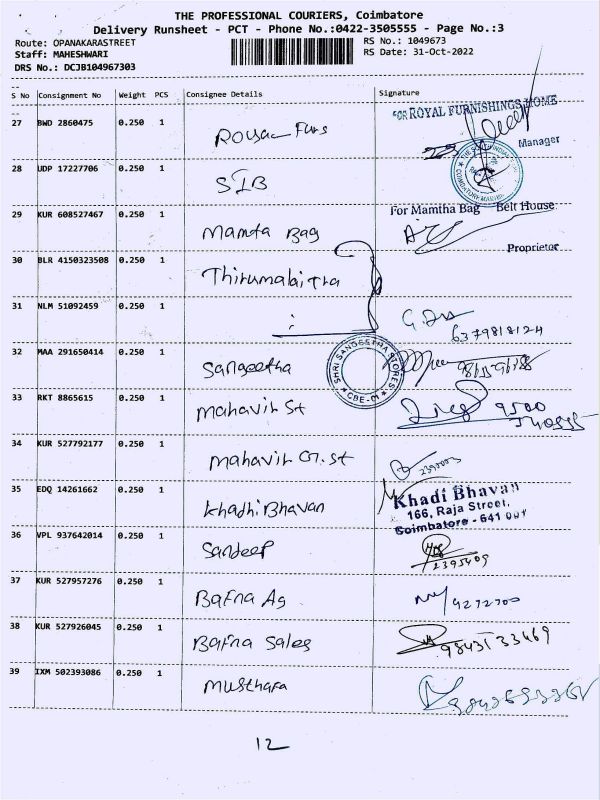 THE PROFESSIONAL COURIERS, Coimbatore
Delivery Runsheet - PCT - Phone No.:0422-3505555 - Page No.:3
Route: OPANAKARASTREET RS No.: 1049673
Staff: MAHESHWARI RS Date: 31-Oct-2022
DRS No.: DCJB104967303
S No Consignment No Weight PCS Consignee Details Signature
27 BWD 2860475 0.250 1
FOR ROYAL FURNISHINGS HOME
Manager
28 UDP 17227706 0.250 1 SIB
29 KUR 608527467 0.250 1 Mamta Bag
For Mamtha Bag Belt House
Proprietor
30 BLR 4150323508 0.250 1
31 NLM 51092459 0.250 1
6379818124
32 MAA 291650414 0.250 1 Sangeetha
SHRI SANGEETHA STORES
CBE-01
33 RKT 8865615 0.250 1 Mahavir St
34 KUR 527792177 0.250 1 Mahavir G.St
35 EDQ 14261662 0.250 1 Khadhi Bhavan
Khadi Bhavan
166, Raja Street,
Coimbatore - 641 001
36 VPL 937642014 0.250 1 Sandeep
2395409
37 KUR 527957276 0.250 1 Bafna Ag
9272700
38 KUR 527926045 0.250 1 Bafna Sales
9843133469
39 IXM 502393086 0.250 1 Musthafa
12